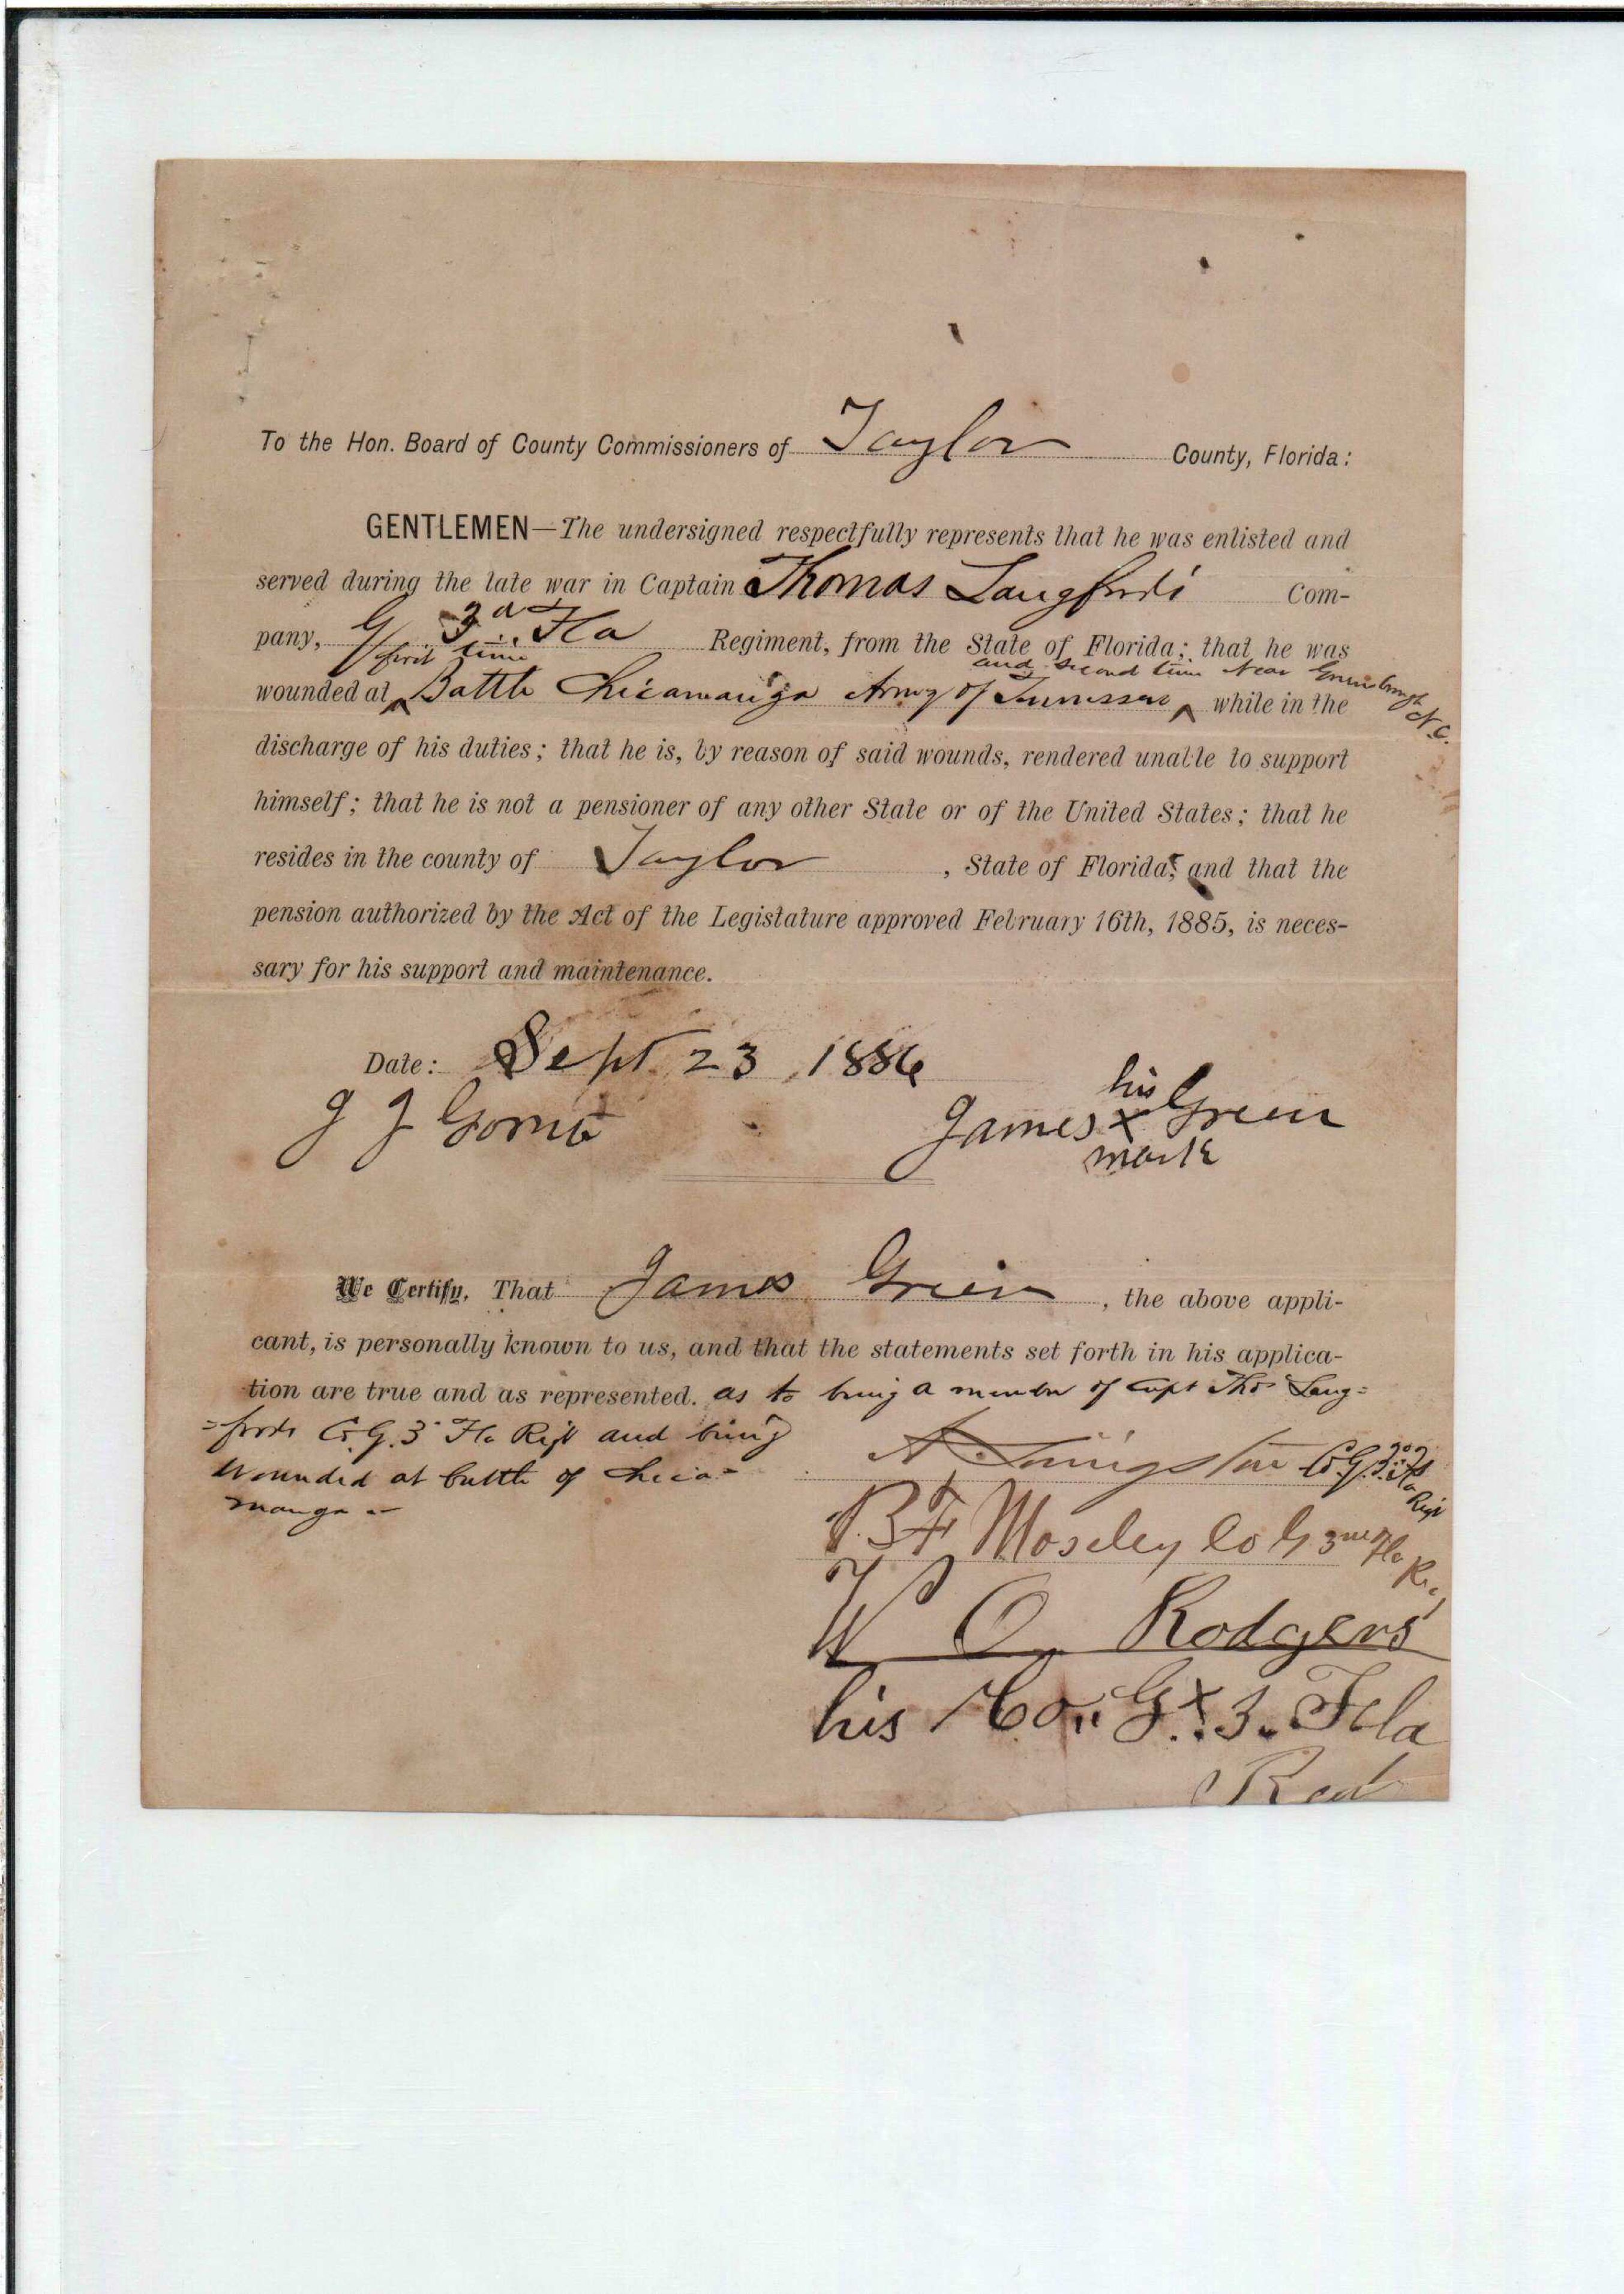 To the Hon. Board of County Commissioners of Taylor County, Florida:
GENTLEMEN—The undersigned respectfully represents that he was enlisted and
served during the late war in Captain Thomas Langfords Com-
pany, G 3d Fla Regiment, from the State of Florida; that he was
first time and second time Near Greensbough N.C.
wounded at ^ Battle Chicamauga Army of Tennessee ^ while in the
discharge of his duties; that he is, by reason of said wounds, rendered unable to support
himself; that he is not a pensioner of any other State or of the United States; that he
resides in the county of Taylor, State of Florida; and that the
pension authorized by the Act of the Legislature approved February 16th, 1885, is neces-
sary for his support and maintenance.
Date: Sept 23, 1886
his
J J James x Green
mark
We Certify, That James Green, the above appli-
cant, is personally known to us, and that the statements set forth in his applica-
tion are true and as represented. as to being a member of Capt Thos Lang=
=fords Co. G. 3 Fla Regt and being
Wounded at battle of Chica=
mauga
A Livingston Co. G. 3rd Fla Regt
B F Moseley Co G 3rd Fla Re
W O Rodgers
his Co. G. x 3. Fla